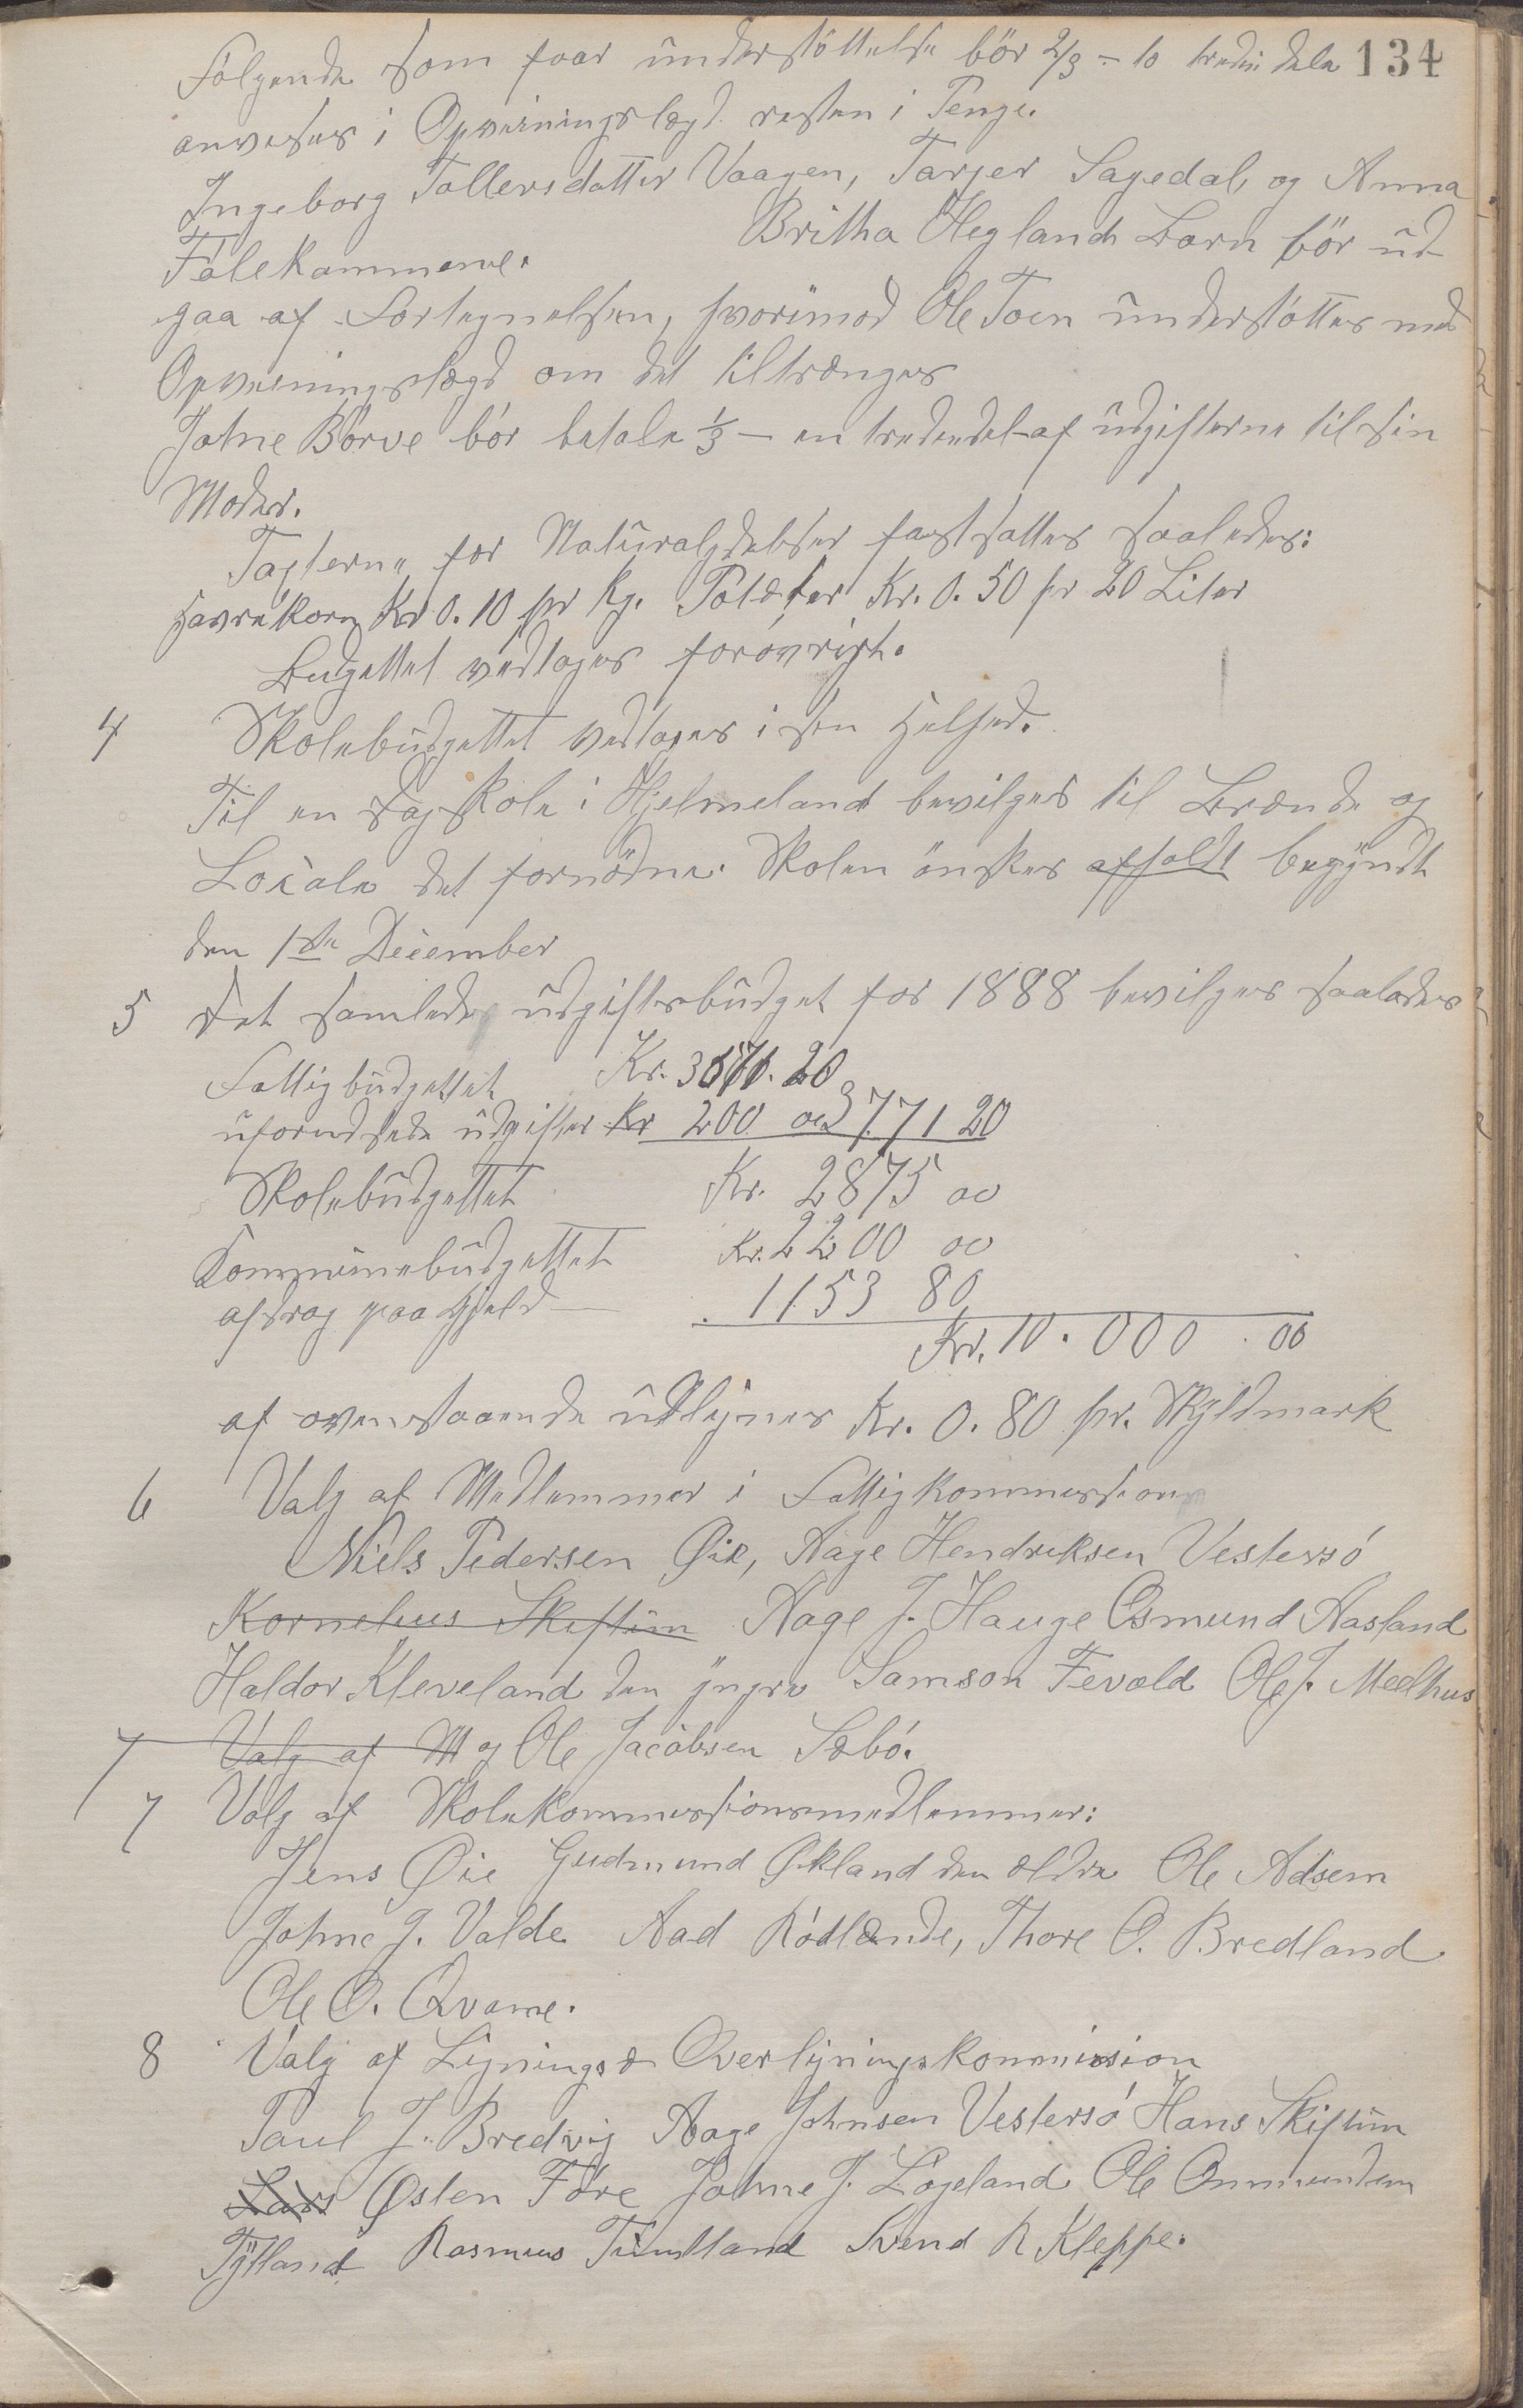 134
Følgende som faar understøttelse bør 2/3 - to tredie dele
anvises i Opvisningslægd resten i Penge.
Ingeborg Tollersdatter Vaagen, Tarjer Sagedal, og Anna
Falekammene. Britha Hegland Barn bør ud-
gaa af Fortegnelsen, hvorimod Ole Toen understøttes med
Opvisningslægd om det tiltrænges
Johne Børve bør betale 1/3 - en trediedel af udgifterne til sin
Moder.
Taxterne for Naturalydelser fastsattes saaledes:
Havrekorn Kr 0.10 pr kg. Poteter Kr. 0.50 pr 20 Liter
Budgettet vedtages forøvrigt.
4 Skolebudgettet vedtages i sin Helhed.
Til en Fagskole i Hjelmeland bevilges til Brænde og
Locale det fornødne. Skolen ønskes afholdt begyndt
den 1ste December
5 Det samlede udgiftsbudget for 1888 bevilges saaledes
Fattigbudgettet Kr. 3571.20
uforudsede udgifter Kr 200 00 3771 20
Skolebudgettet Kr. 2875 00
Kommunebudgettet Kr. 2200 00
afdrag paa Gjeld 1153 80
Kr. 10.000.00
af ovenstaaende udlignes Kr. 0.80 pr. Skyldmark
6 Valg af Medlemmer i Fattigkommission
Niels Pedersen Øie, Aage Hendriksen Vestersø
Kornelius Skiftun Aage J. Hauge Osmund Aasland
Haldor Kleveland den yngre Samson Fevold Ole J. Mælhus
7 Valg af M og Ole Jacobsen Sæbø.
7 Valg af Skolekommissionsmedlemmer:
Jens Øie Gudmund Økland den ældre Ole Adsem
Johne J. Valde Aad Rødlende, Thore O. Bredland
Ole O. Qvame.
8 Valg af Lignings & Overligningskommission
Paul J. Bredvig Aage Johnsen Vestersø Hans Skiftun
Lars Østen Føre Johne J. Løgeland Ole Onmundsen
Tytland Rasmus Tuntland Svend R Kleppe.